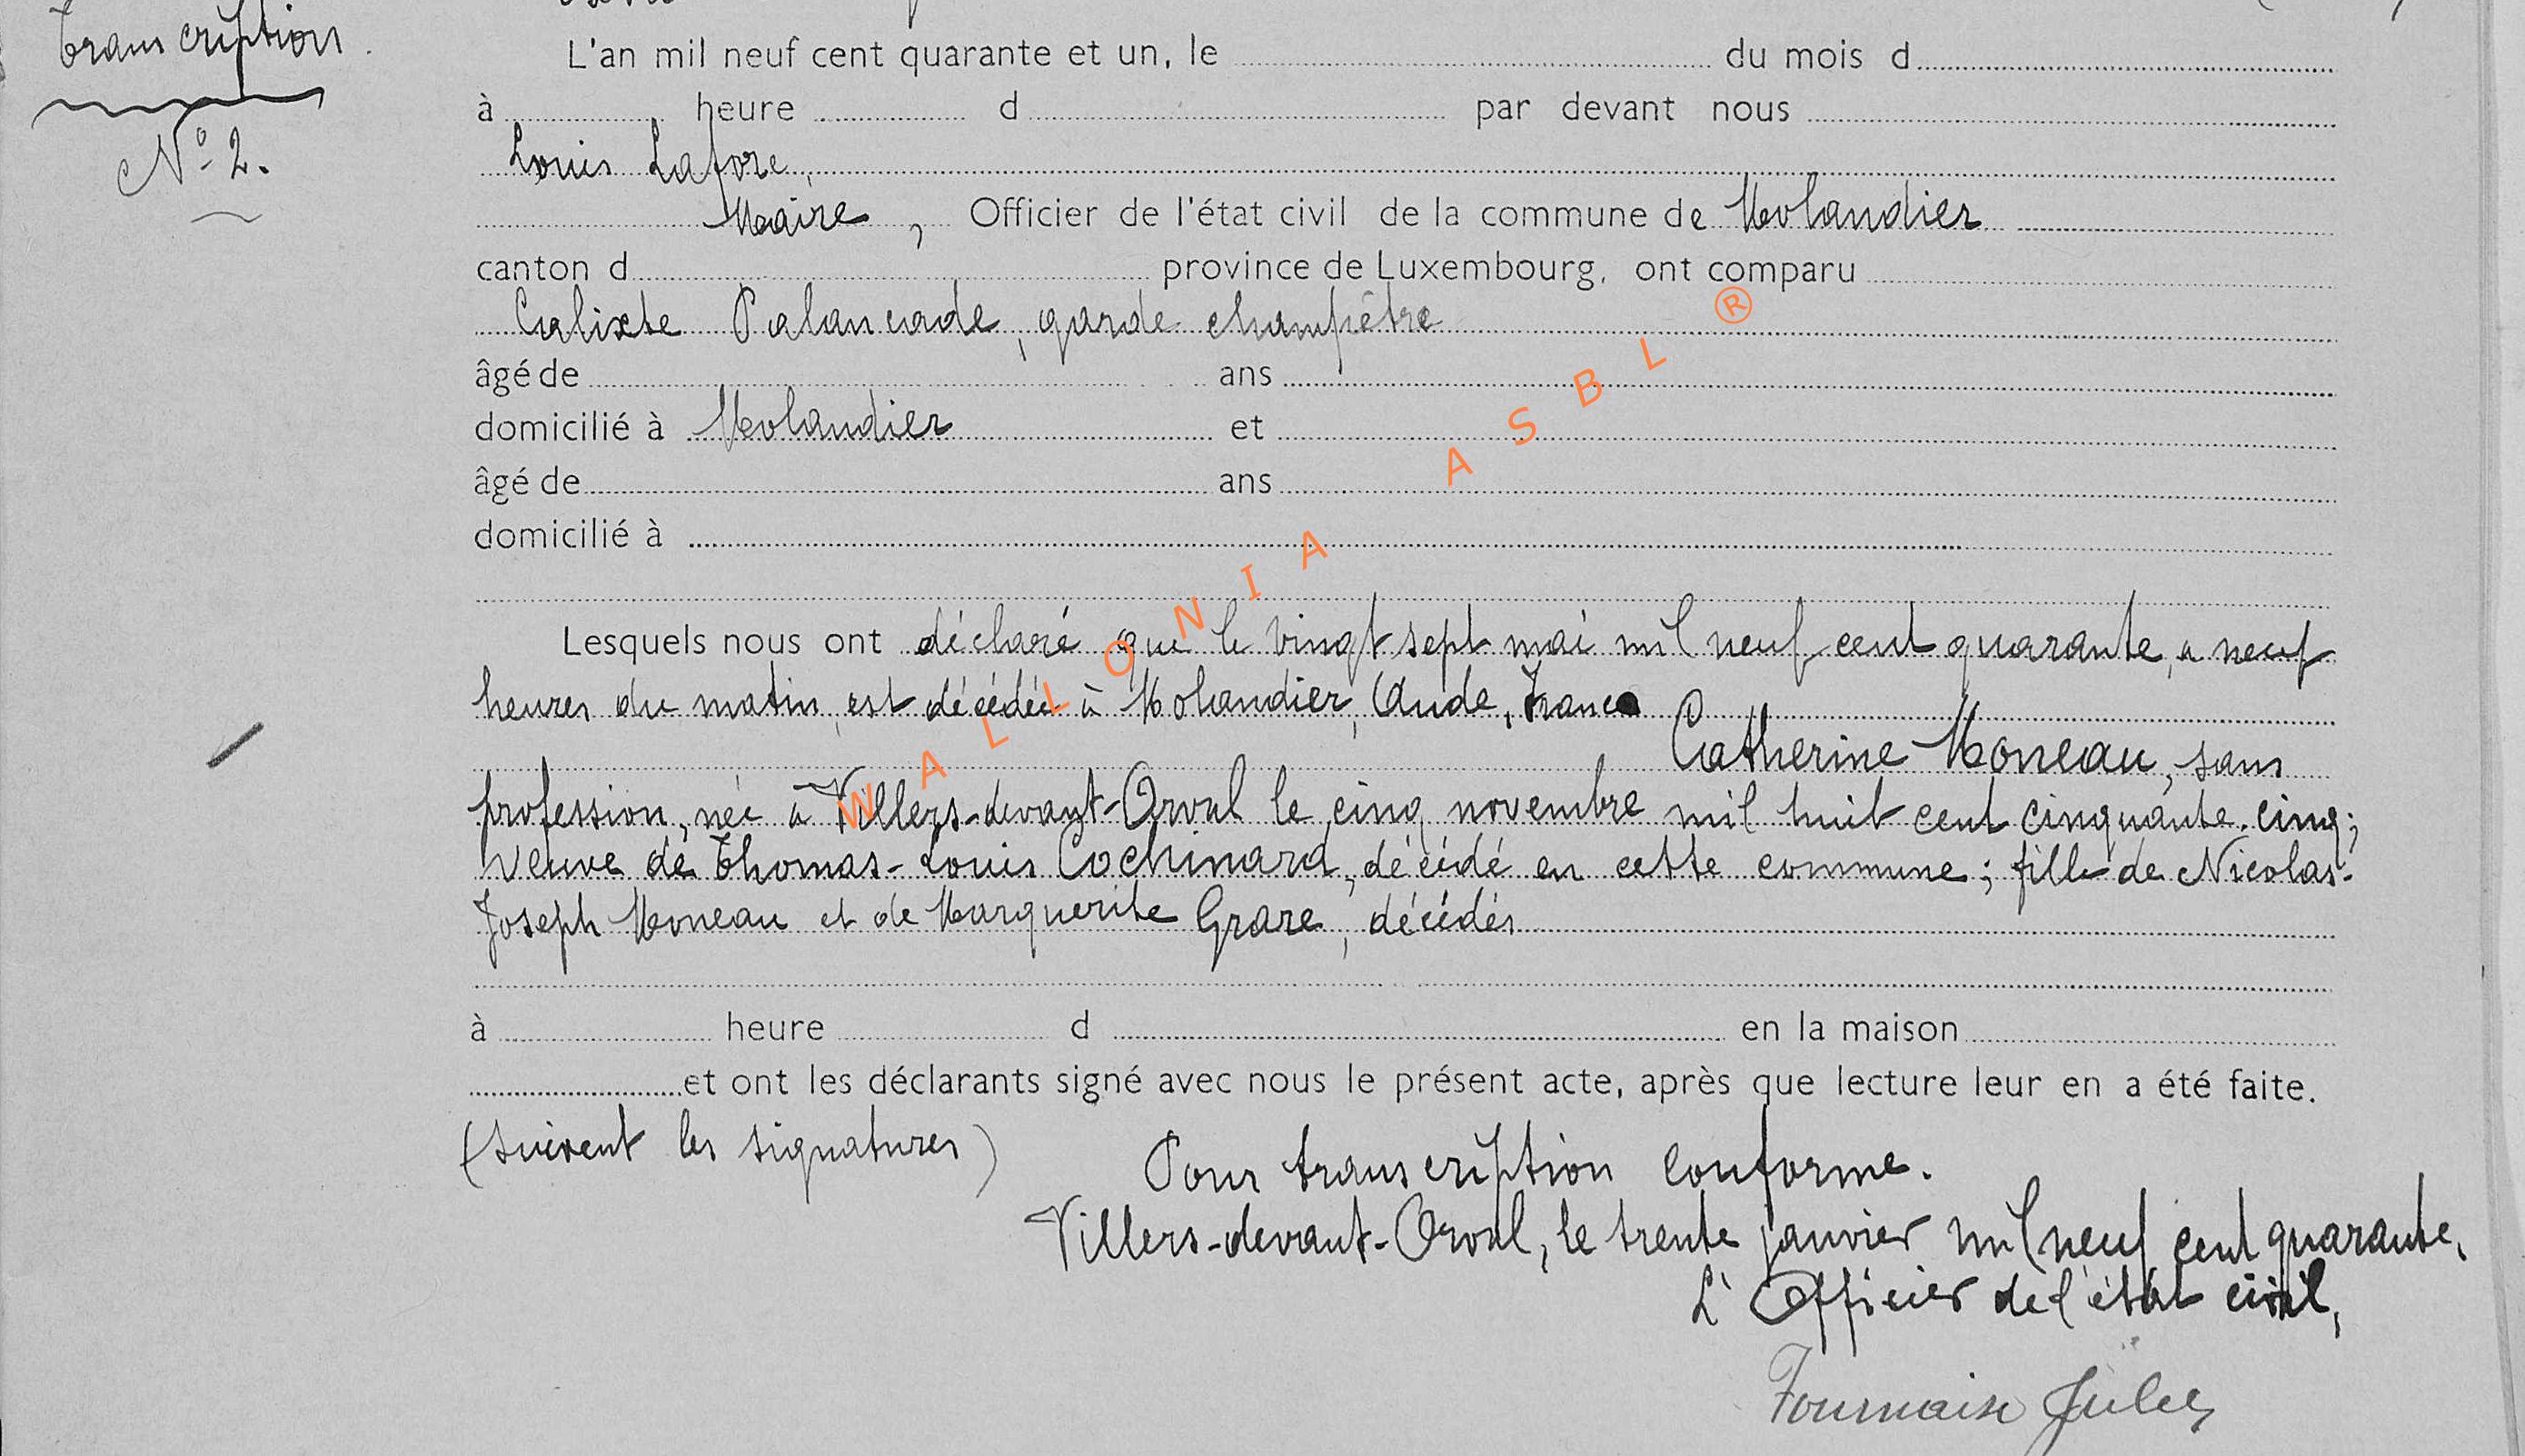 Transcription.
L'an mil neuf cent quarante et un, le du mois d
à heure d par devant nous
N° 2.
Louis Lafore,
Maire, Officier de l'état civil de la commune de Molandier
canton d province de Luxembourg, ont comparu
Calixte Palancade, garde champêtre
âgé de ans
domicilié à Molandier et
âgé de ans
domicilié à
Lesquels nous ont déclaré que le vingt sept mai mil neuf cent quarante, à neuf
heures du matin, est décédée à Molandier, Aude, France
Catherine Moneau, sans
profession, née à Villers-devant-Orval le cinq novembre mil huit cent cinquante-cinq;
veuve de Thomas-Louis Cochinard, décédé en cette commune; fille de Nicolas-
Joseph Moneau et de Marguerite Grare, décédés
à heure d en la maison
et ont les déclarants signé avec nous le présent acte, après que lecture leur en a été faite.
(suivent les signatures)
Pour transcription conforme.
Villers-devant-Orval, le trente janvier mil neuf cent quarante.
L'Officier de l'état civil,
Fournaise Jules
WALLONIA ASBL ®